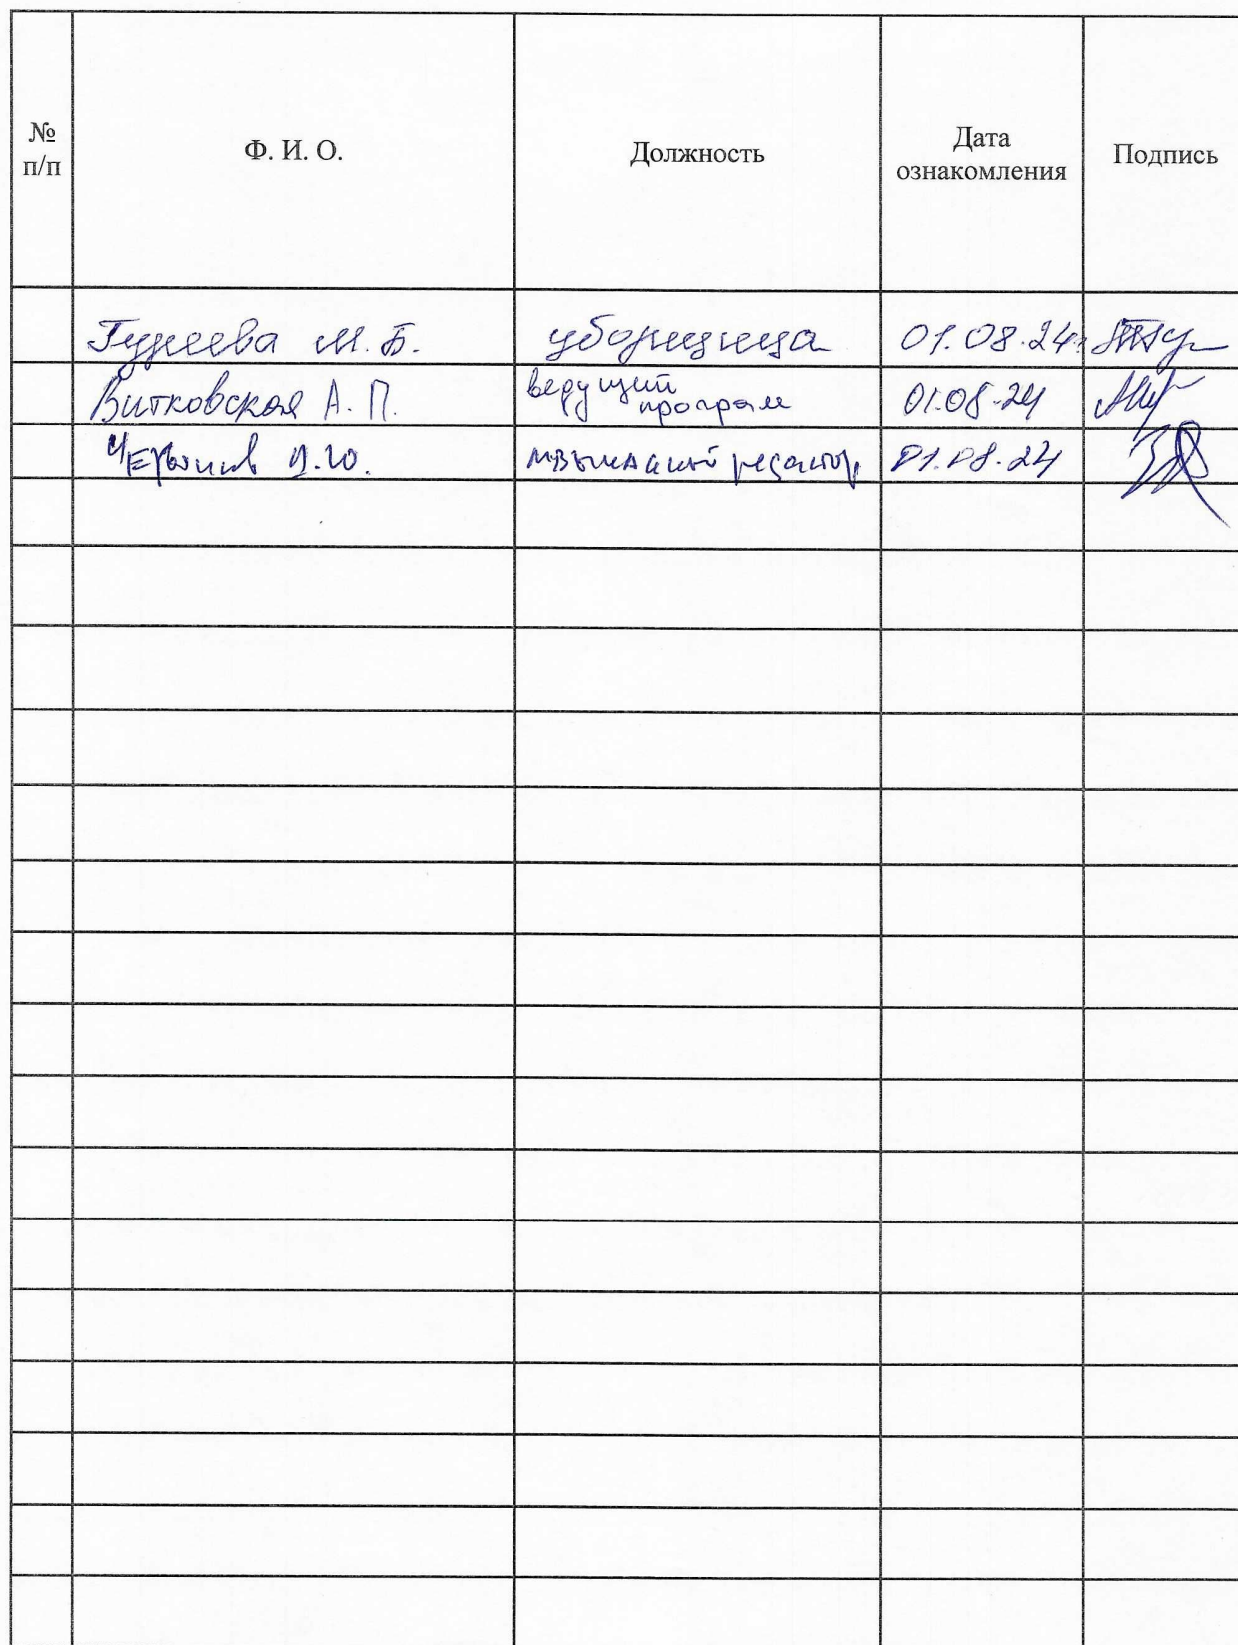 № п/п Ф. И. О. Должность Дата ознакомления Подпись
М. Б. уборщица 01.08.24
Витковская А. П. ведущий програм 01.08.24
Ю. музыкальный редактор 01.08.24